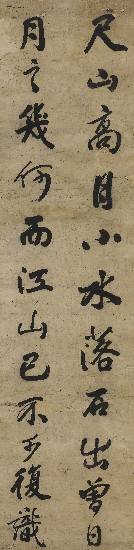 尺山高月小水落石出曾日
月之幾何而江山已不可復識